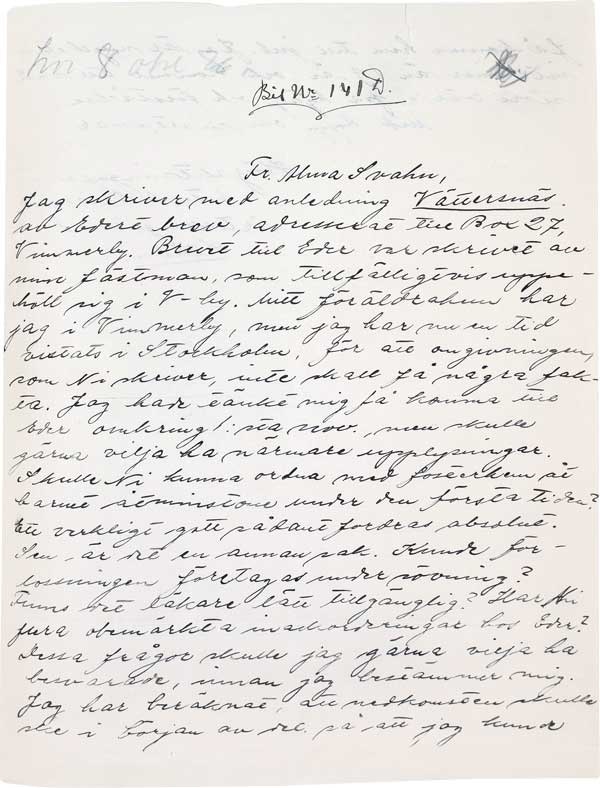 Bil Nr 141 D.
Fr. Alma Svahn,
Jag skriver med anledning Vättersnäs.
av Edert brev, adresserat till Box 27,
Vimmerby. Brevet till Eder var skrivet av
min fästman, som tillfälligtvis uppe-
höll sig i V-by. Mitt föräldrahem har
jag i Vimmerby, men jag har nu en tid
vistats i Stockholm, för att omgivningen,
som Ni skriver, inte skall få några fak-
ta. Jag hade tänkt mig få komma till
Eder omkring 1:sta nov. men skulle
gärna vilja ha närmare upplysningar.
Skulle Ni kunna ordna med fosterhem åt
barnet åtminstone under den första tiden?
Ett verkligt gott sådant fordras absolut.
Sen - är det en annan sak. Kunde för-
lossningen företagas under sövning?
Finns det läkare lätt tillgänglig? Har Ni
fura obemärkta inackorderingar hos Eder?
Dessa frågor skulle jag gärna vilja ha
besvarade, innan jag bestämmer mig.
Jag har beräknat, att nedkomsten skulle
ske i början av dec. så att jag kunde